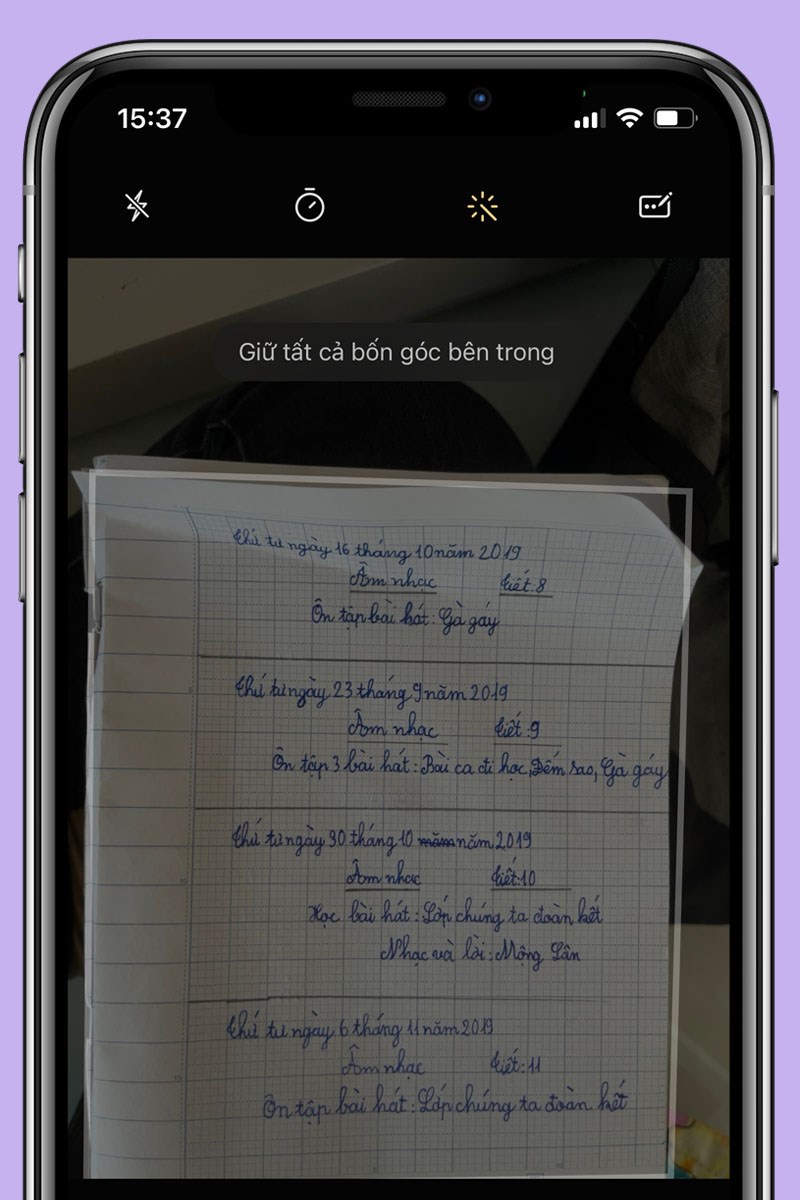 15:37
Giữ tất cả bốn góc bên trong
Thứ tư ngày 16 tháng 10 năm 2019
Âm nhạc tiết: 8
Ôn tập bài hát: Gà gáy
Thứ tư ngày 23 tháng 9 năm 2019
Âm nhạc tiết: 9
Ôn tập 3 bài hát: Bài ca đi học, Đếm sao, Gà gáy
Thứ tư ngày 30 tháng 10 năm năm 2019
Âm nhạc tiết: 10
Học bài hát: Lớp chúng ta đoàn kết
Nhạc và lời: Mộng Lân
Thứ tư ngày 6 tháng 11 năm 2019
Âm nhạc tiết: 11
Ôn tập bài hát: Lớp chúng ta đoàn kết